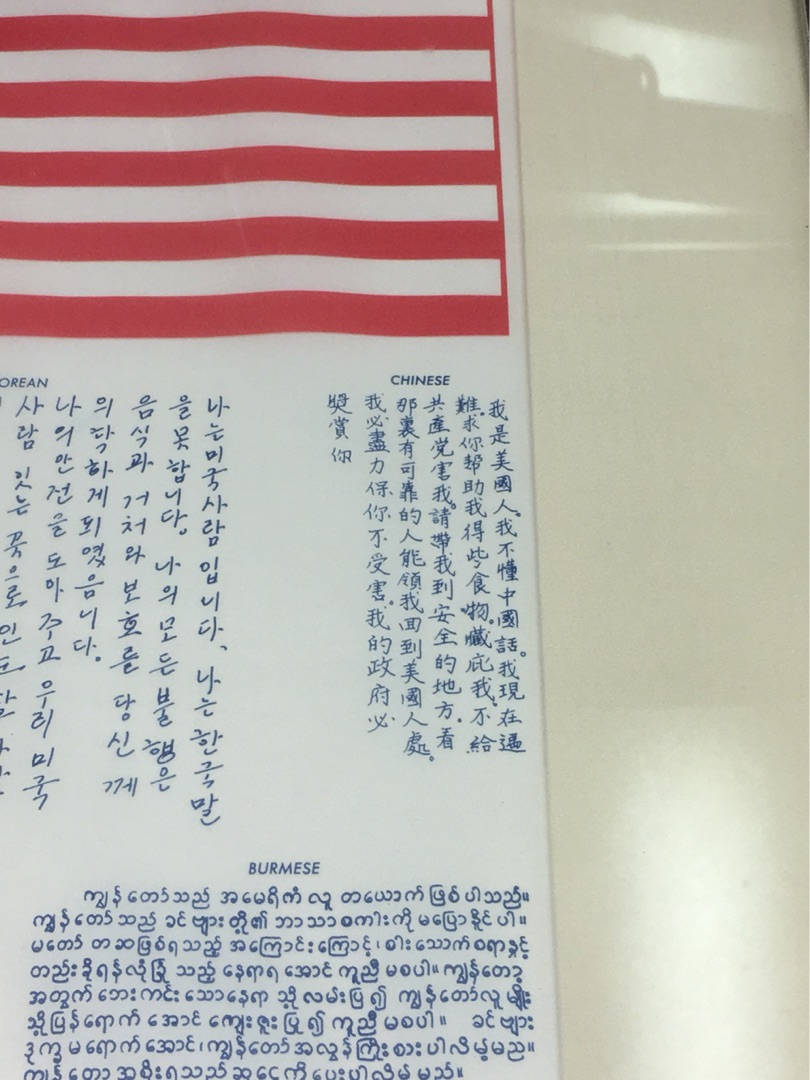 OREAN
나는 미국 사람 입니다、 나는 한국 말
을 못 합니다。 나의 모든 불행은
음식과 거처와 보호를 당신께
의탁하게 되였읍니다.
나의 안전을 도아 주고 우리 미국
사람 잇는 곳으로
CHINESE
我是美國人。我不懂中國話。我現在遇
難。求你帮助我得些食物。藏庇我。不給
共產党害我。請帶我到安全的地方。看
那裏有可靠的人能領我回到美國人處。
我必盡力保你不受害。我的政府必
奬賞你
BURMESE
ကျွန်တော်သည် အမေရိကံ လူ တယောက် ဖြစ်ပါသည်။
ကျွန်တော်သည် ခင်ဗျားတို့၏ ဘာသာစကါးကို မပြောနိုင်ပါ။
မတော်တဆဖြစ်ရသည့် အကြောင်းကြောင့်၊ စါးသောက်စရာနှင့်
တည်းခိုရန်လုံခြုံသည့် နေရာရအောင် ကူညီမစပါ။ ကျွန်တော့
အတွက် ဘေးကင်းသောနေရာသို့ လမ်းပြ၍ ကျွန်တော်လူမျိုး
သို့ပြန်ရောက်အောင် ကျေးဇူးပြု၍ ကူညီမစပါ။ ခင်ဗျား
ဒုက္ခမရောက်အောင်၊ ကျွန်တော်အလွန်ကြိုးစားပါလိမ့်မည်။
ကျွန်တော့အစိုးရသည် ဆုငွေကိုပေးပါလိမ့်မည်။